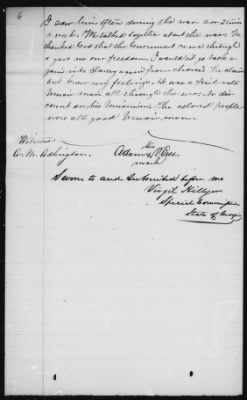 6
I saw him often during the war 2 or 3 times
a week. We talked together about the war. He
thanked God that the Government came through
& gave us our freedom. I wouldn't go back
again into Slavery again from choice. He always
my feelings. He was a fair
Union man all through the war. No dis
count on his Unionism. The colored people
were all good Union men.
Witness
W. M. Addington.
his
Adam
mark
Sworn to and Subscribed before me
Virgil Hillyer
Special Commissioner
State of Georgia